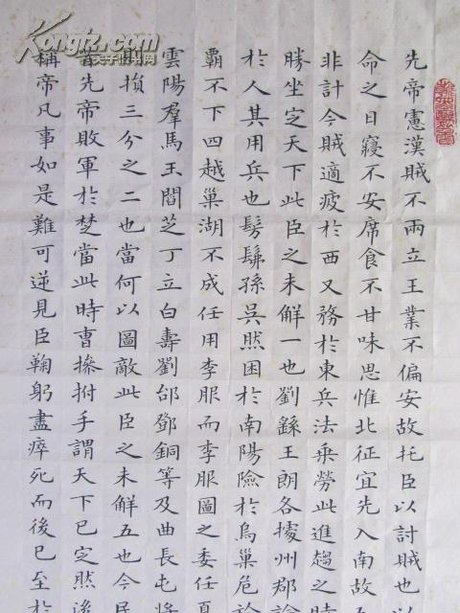 先帝憲漢賊不兩立王業不偏安故托臣以討賊也
命之日寢不安席食不甘味思惟北征宜先入南故
非計今賊適疲於西又務於東兵法乗勞此進趨之時
勝坐定天下此臣之未解一也劉繇王朗各據州郡論
於人其用兵也髣髴孫吳然困於南陽險於烏巢危於
霸不下四越巢湖不成任用李服而李服圖之委任夏
雲陽羣馬玉閻芝丁立白壽劉郃鄧銅等及曲長屯將
則損三分之二也當何以圖敵此臣之未解五也今民
昔先帝敗軍於楚當此時曹操拊手謂天下已定然後
稱帝凡事如是難可逆見臣鞠躬盡瘁死而後已至於
Kongfz.com